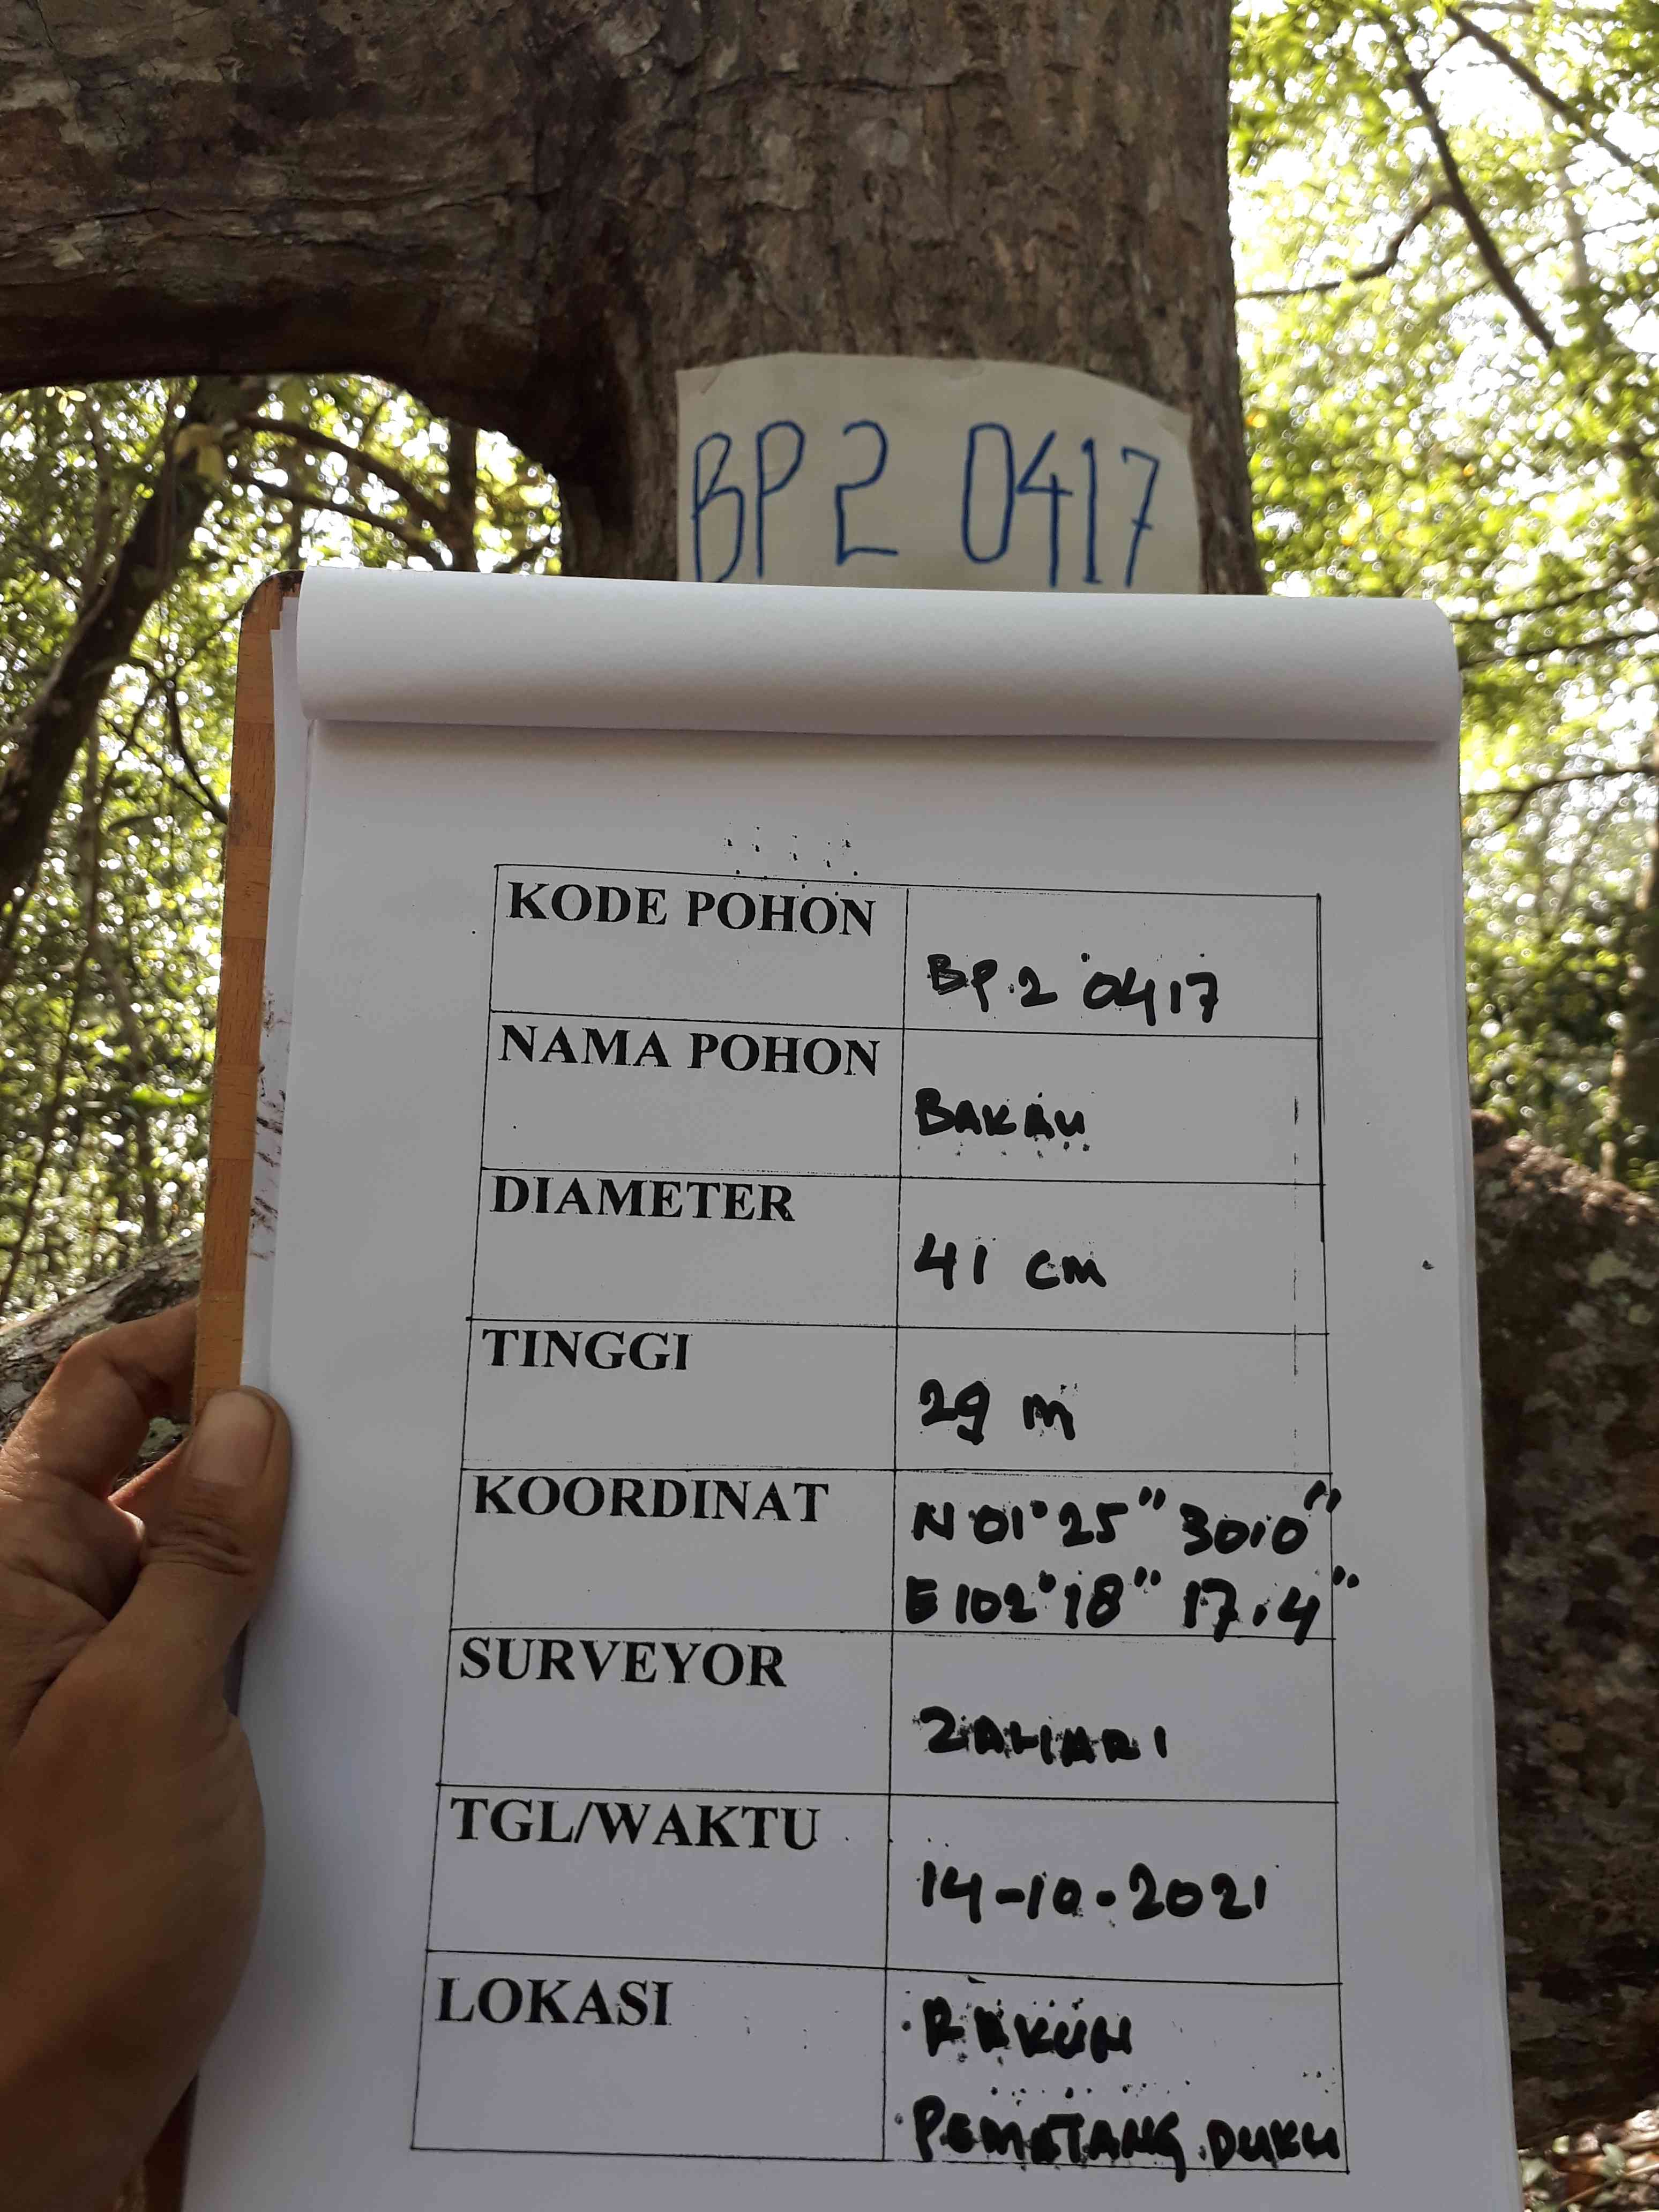 BP 2 0417
KODE POHON
BP.2 0417
NAMA POHON
BAKAU
DIAMETER
41 cm
TINGGI
29 m
KOORDINAT
N 01° 25" 30.0"
E 102° 18" 17.4"
SURVEYOR
ZALIARI
TGL/WAKTU
14-10-2021
LOKASI
PEMATANG DUKU